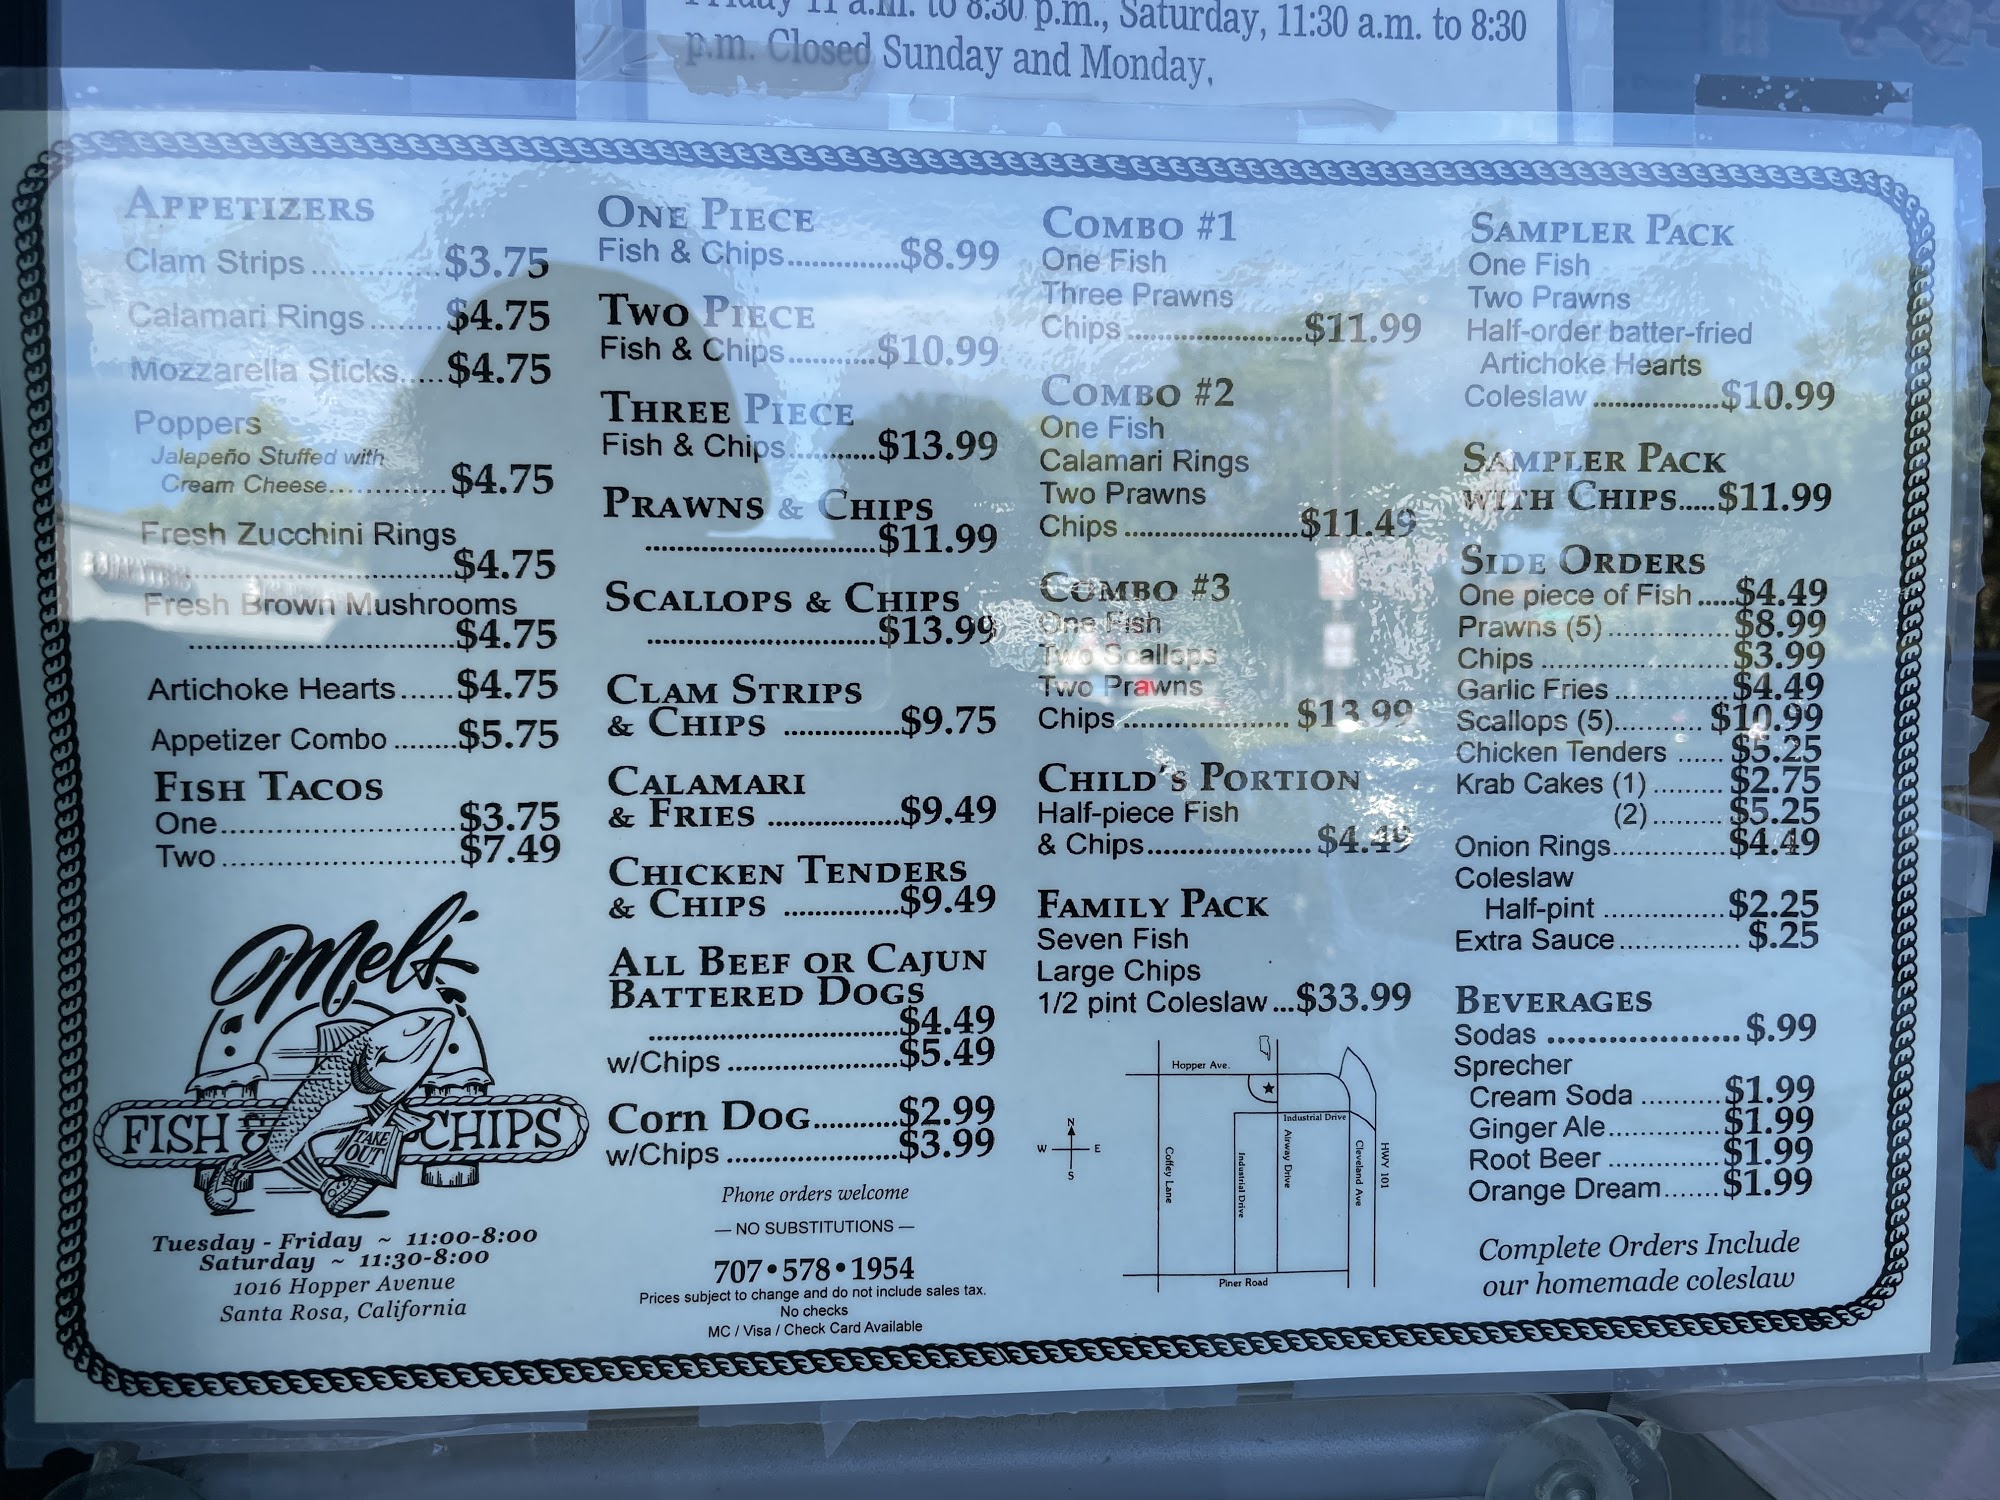 Friday 11 a.m. to 8:30 p.m., Saturday, 11:30 a.m. to 8:30
p.m. Closed Sunday and Monday,
APPETIZERS
Clam Strips..............$3.75
Calamari Rings........$4.75
Mozzarella Sticks.....$4.75
Poppers
Jalapeño Stuffed with
Cream Cheese.............$4.75
Fresh Zucchini Rings
..............................$4.75
Fresh Brown Mushrooms
..............................$4.75
Artichoke Hearts......$4.75
Appetizer Combo........$5.75
FISH TACOS
One..........................$3.75
Two..........................$7.49
Mel's
FISH & CHIPS
TAKE
OUT
Tuesday - Friday ~ 11:00-8:00
Saturday ~ 11:30-8:00
1016 Hopper Avenue
Santa Rosa, California
ONE PIECE
Fish & Chips...............$8.99
TWO PIECE
Fish & Chips...........$10.99
THREE PIECE
Fish & Chips...........$13.99
PRAWNS & CHIPS
..............................$11.99
SCALLOPS & CHIPS
..............................$13.99
CLAM STRIPS
& CHIPS ................$9.75
CALAMARI
& FRIES ..................$9.49
CHICKEN TENDERS
& CHIPS ................$9.49
ALL BEEF OR CAJUN
BATTERED DOGS
..................................$4.49
w/Chips ......................$5.49
CORN DOG...........$2.99
w/Chips ......................$3.99
Phone orders welcome
— NO SUBSTITUTIONS —
707•578•1954
Prices subject to change and do not include sales tax.
No checks
MC / Visa / Check Card Available
COMBO #1
One Fish
Three Prawns
Chips.........................$11.99
COMBO #2
One Fish
Calamari Rings
Two Prawns
Chips.........................$11.49
COMBO #3
One Fish
Two Scallops
Two Prawns
Chips........................$13.99
CHILD'S PORTION
Half-piece Fish
& Chips.......................$4.49
FAMILY PACK
Seven Fish
Large Chips
1/2 pint Coleslaw...$33.99
Hopper Ave.
Industrial Drive
N
W
E
S
Coffey Lane
Industrial Drive
Airway Drive
Cleveland Ave
HWY 101
Piner Road
SAMPLER PACK
One Fish
Two Prawns
Half-order batter-fried
Artichoke Hearts
Coleslaw ..................$10.99
SAMPLER PACK
WITH CHIPS.....$11.99
SIDE ORDERS
One piece of Fish.....$4.49
Prawns (5)................$8.99
Chips........................$3.99
Garlic Fries...............$4.49
Scallops (5)............$10.99
Chicken Tenders ......$5.25
Krab Cakes (1).........$2.75
(2).........$5.25
Onion Rings..............$4.49
Coleslaw
Half-pint ................$2.25
Extra Sauce................$.25
BEVERAGES
Sodas .....................$.99
Sprecher
Cream Soda ..........$1.99
Ginger Ale..............$1.99
Root Beer ..............$1.99
Orange Dream.......$1.99
Complete Orders Include
our homemade coleslaw